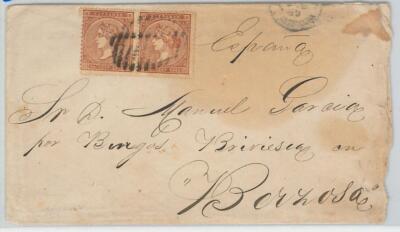 España
Sr D. Manuel Garcia
por Burgos Briviesca en
"Berzosa"